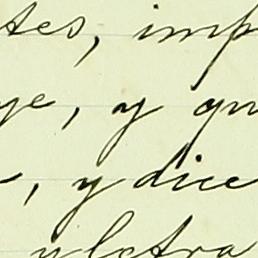 tes, imp
ye, y qu
, y dice
y letra